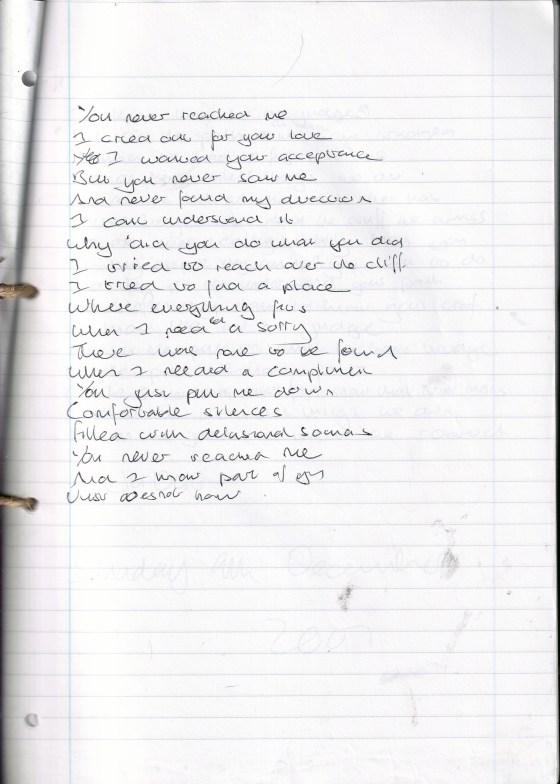 You never reached me
I cried out for your love
I wanted your acceptance
But you never saw me
And never found my direction
I cant understand it
Why did you do what you did
I tried to reach over the cliff
I tried to find a place
Where everything fits
When I needed a sorry
There was none to be found
When I needed a compliment
You just put me down
Comfortable silences
filled with delusional sounds
You never reached me
And I know part of
Just does not